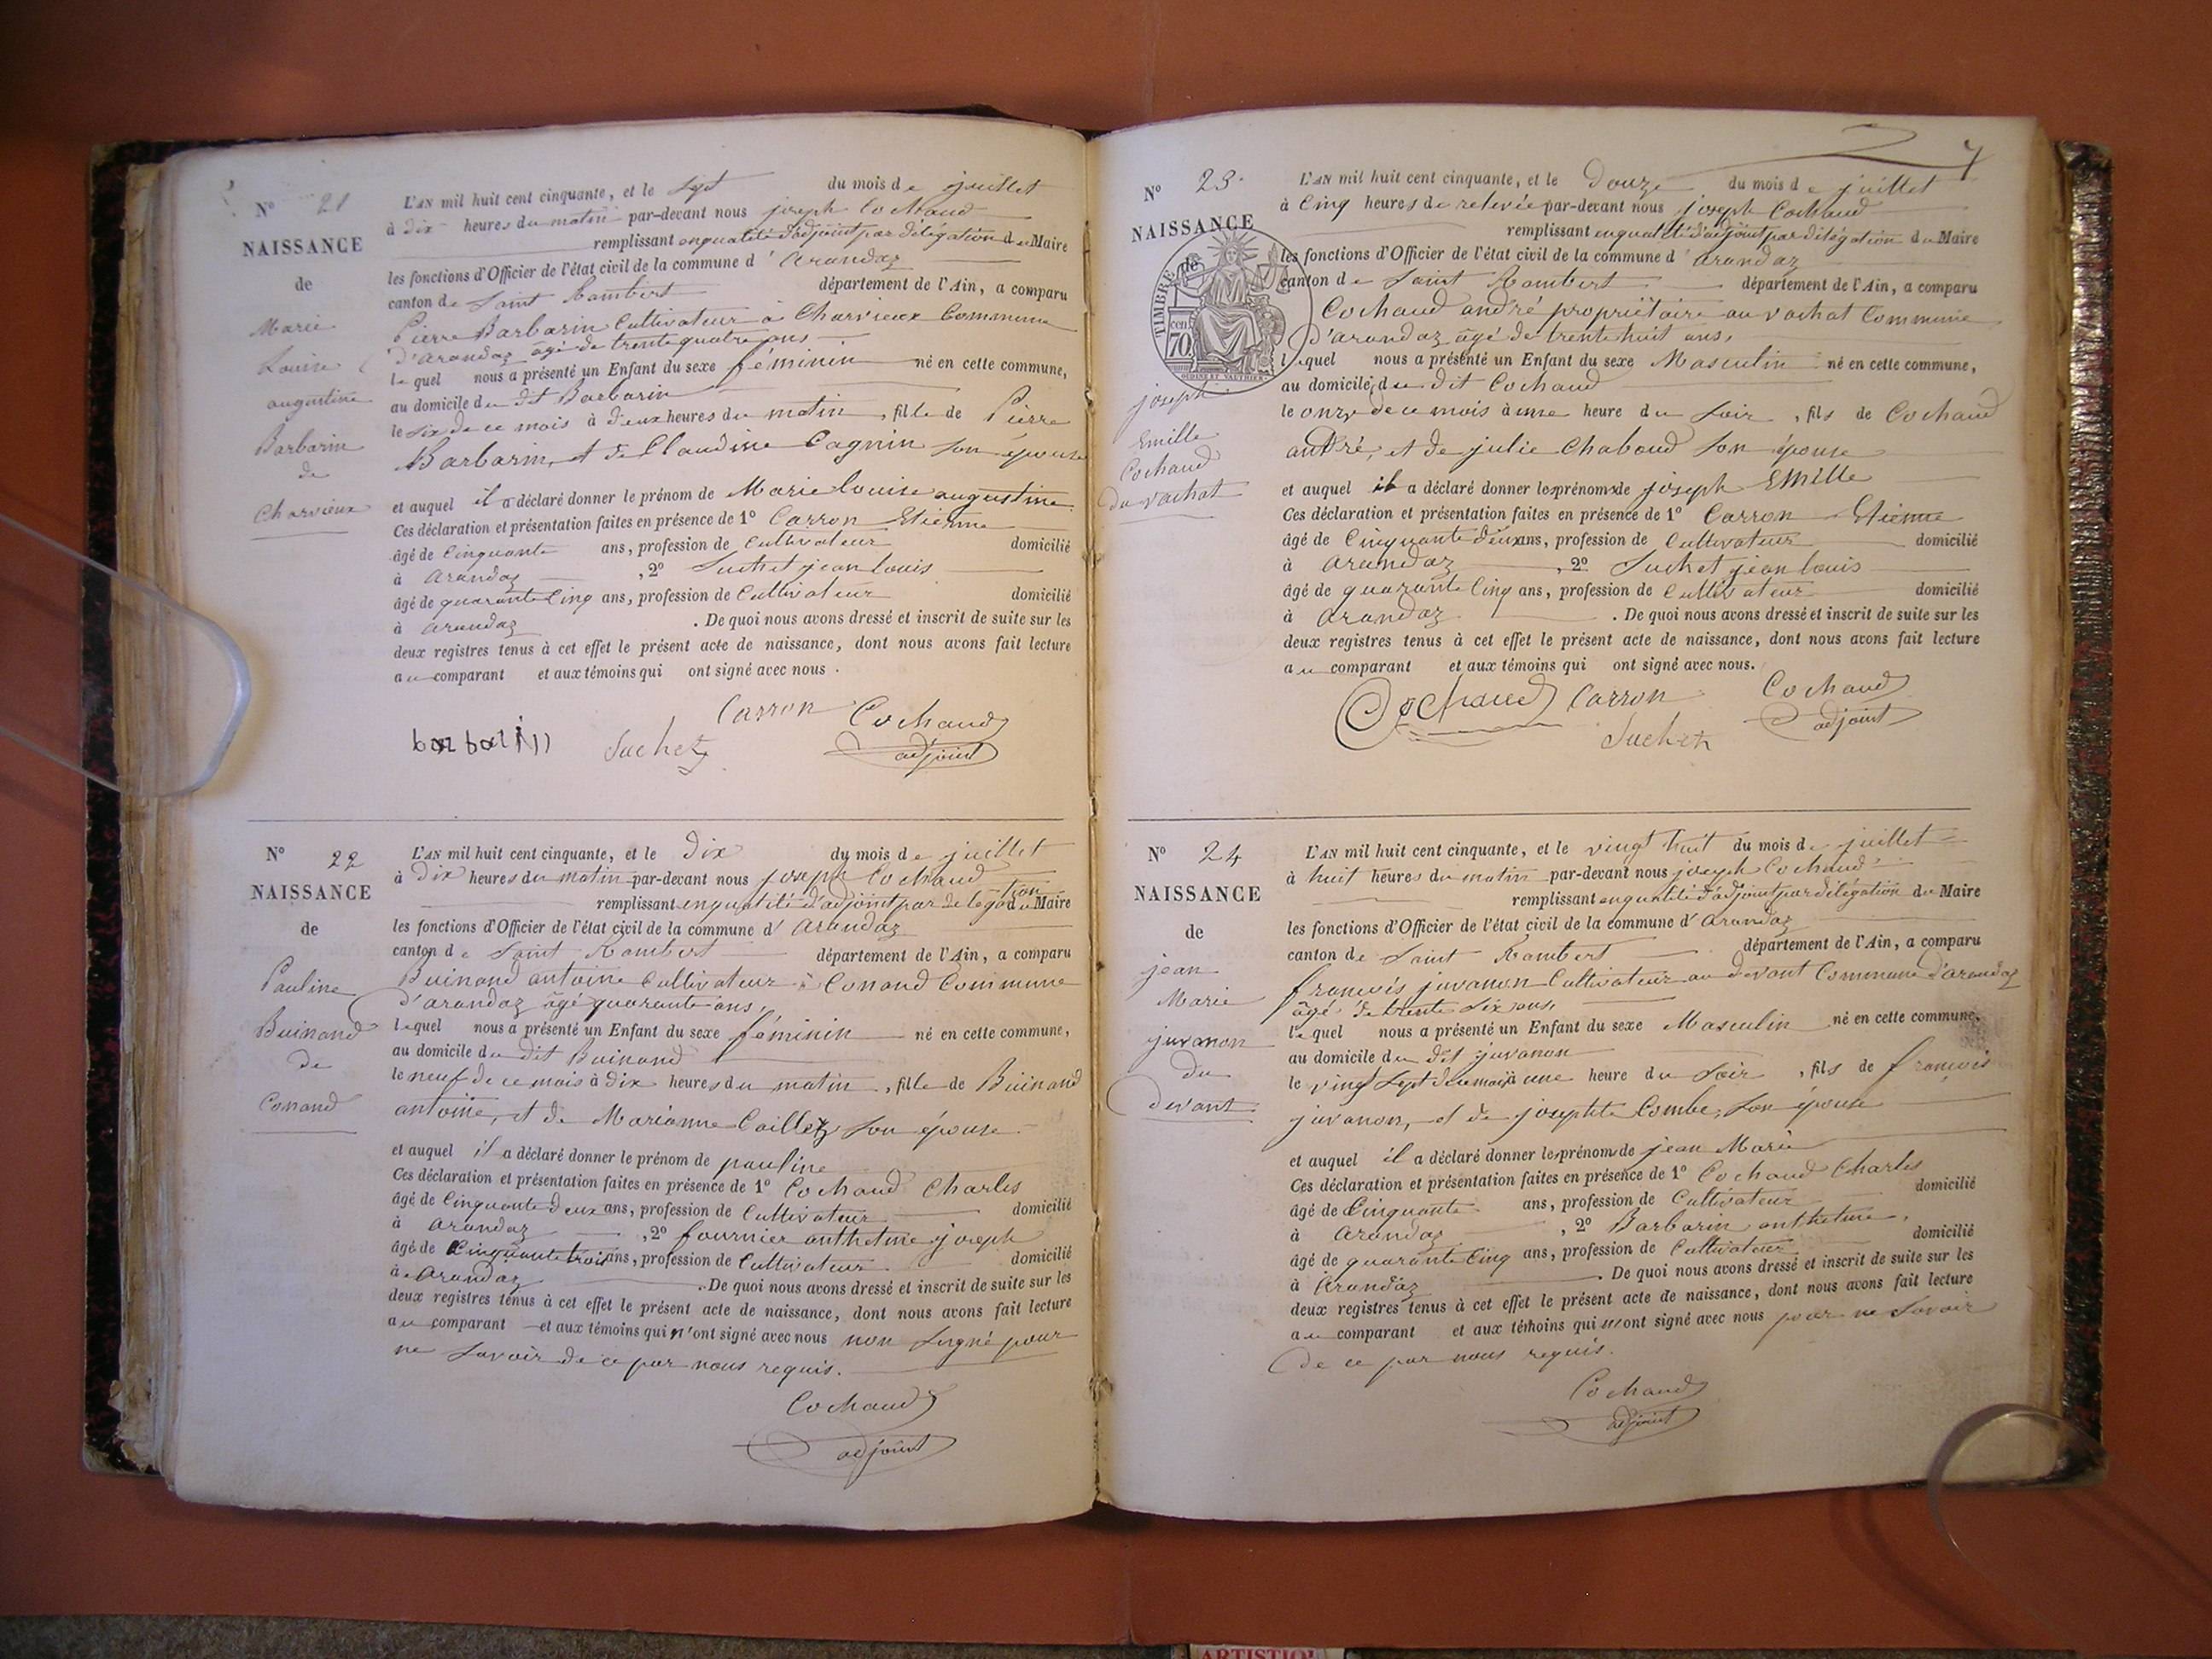 N° 21
NAISSANCE
de
Marie
Louise
augustine
Barbarin
de
Charvieux
L'AN mil huit cent cinquante, et le sept du mois de juillet
à dix heures du matin par-devant nous joseph Cochaud
remplissant en qualité d'adjoint par délégation du Maire
les fonctions d'Officier de l'état civil de la commune d'arandaz
canton de Saint Rambert département de l'Ain, a comparu
Pierre Barbarin Cultivateur à Charvieux Commune
d'arandaz âgé de trente quatre ans
lequel nous a présenté un Enfant du sexe féminin né en cette commune,
au domicile du dit Barbarin
le six de ce mois à deux heures du matin, fille de Pierre
Barbarin, et de Claudine Cagnin son épouse
et auquel il a déclaré donner le prénom de Marie Louise augustine
Ces déclaration et présentation faites en présence de 1° Carron Etienne
âgé de Cinquante ans, profession de Cultivateur domicilié
à arandaz, 2° Suchet jean Louis
âgé de quarante Cinq ans, profession de Cultivateur domicilié
à arandaz. De quoi nous avons dressé et inscrit de suite sur les
deux registres tenus à cet effet le présent acte de naissance, dont nous avons fait lecture
au comparant et aux témoins qui ont signé avec nous.
Carron Cochaud
barbarin Suchet adjoint
N° 22
NAISSANCE
de
Pauline
Buinand
de
Conand
L'AN mil huit cent cinquante, et le dix du mois de juillet
à dix heures du matin par-devant nous joseph Cochaud
remplissant en qualité d'adjoint par délégation du Maire
les fonctions d'Officier de l'état civil de la commune d'arandaz
canton de Saint Rambert département de l'Ain, a comparu
Buinand antoine Cultivateur à Conand Commune
d'arandaz âgé quarante ans,
lequel nous a présenté un Enfant du sexe féminin né en cette commune,
au domicile du dit Buinand
le neuf de ce mois à dix heures du matin, fille de Buinand
antoine, et de Marianne Caillez son épouse
et auquel il a déclaré donner le prénom de pauline
Ces déclaration et présentation faites en présence de 1° Cochaud Charles
âgé de Cinquante deux ans, profession de Cultivateur domicilié
à arandaz, 2° fournier anthelme joseph
âgé de Cinquante trois ans, profession de Cultivateur domicilié
à arandaz. De quoi nous avons dressé et inscrit de suite sur les
deux registres tenus à cet effet le présent acte de naissance, dont nous avons fait lecture
au comparant et aux témoins qui n'ont signé avec nous non signé pour
ne savoir de ce par nous requis.
Cochaud
adjoint
7
N° 23
NAISSANCE
de
TIMBRE
cen
70
joseph
Emille
Cochaud
du vachat
L'AN mil huit cent cinquante, et le douze du mois de juillet
à Cinq heures de relevée par-devant nous joseph Cochaud
remplissant en qualité d'adjoint par délégation du Maire
les fonctions d'Officier de l'état civil de la commune d'arandaz
canton de Saint Rambert département de l'Ain, a comparu
Cochaud andré propriétaire au vachat Commune
d'arandaz âgé de trente huit ans,
lequel nous a présenté un Enfant du sexe Masculin né en cette commune,
au domicile du dit Cochaud
le onze de ce mois à une heure du soir, fils de Cochaud
andré, et de julie Chaboud son épouse
et auquel il a déclaré donner les prénoms de joseph Emille
Ces déclaration et présentation faites en présence de 1° Carron Etienne
âgé de Cinquante deux ans, profession de Cultivateur domicilié
à arandaz, 2° Suchet jean Louis
âgé de quarante Cinq ans, profession de Cultivateur domicilié
à arandaz. De quoi nous avons dressé et inscrit de suite sur les
deux registres tenus à cet effet le présent acte de naissance, dont nous avons fait lecture
au comparant et aux témoins qui ont signé avec nous.
Cochaud Carron Cochaud
Suchet adjoint
N° 24
NAISSANCE
de
jean
Marie
juvanon
du
devant
L'AN mil huit cent cinquante, et le vingt huit du mois de juillet
à huit heures du matin par-devant nous joseph Cochaud
remplissant en qualité d'adjoint par délégation du Maire
les fonctions d'Officier de l'état civil de la commune d'arandaz
canton de Saint Rambert département de l'Ain, a comparu
françois juvanon Cultivateur au devant Commune d'arandaz
âgé de trente six ans,
lequel nous a présenté un Enfant du sexe Masculin né en cette commune,
au domicile du dit juvanon
le vingt sept de ce mois à une heure du soir, fils de françois
juvanon, et de josephte Combe, son épouse
et auquel il a déclaré donner les prénoms de jean Marie
Ces déclaration et présentation faites en présence de 1° Cochaud Charles
âgé de Cinquante ans, profession de Cultivateur domicilié
à arandaz, 2° Barbarin anthelme,
âgé de quarante Cinq ans, profession de Cultivateur domicilié
à arandaz. De quoi nous avons dressé et inscrit de suite sur les
deux registres tenus à cet effet le présent acte de naissance, dont nous avons fait lecture
au comparant et aux témoins qui n'ont signé avec nous pour ne savoir
de ce par nous requis.
Cochaud
adjoint